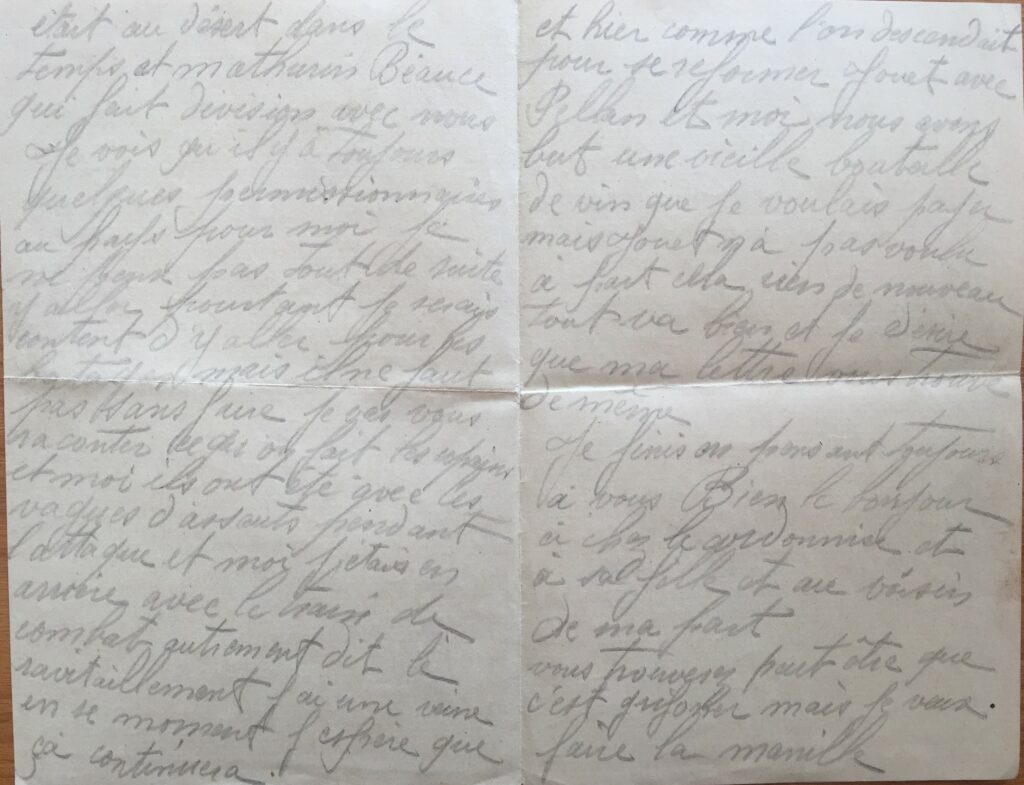 était au désert dans le
temps et mathurin Béauce
qui fait division avec nous
Je vois qu'il y à toujours
quelques permissionnaires
au pays pour moi je
ne peux pas tout de suite
y aller pourtant je serais
content d'y aller pour les
mais il ne faut
pas sans faire je vais vous
raconter ce qu on fait les copains
et moi ils ont été avec les
vagues d'assauts pendant
l'attaque et moi j etais en
arrière avec le train de
combat autrement dit le
ravitaillement j ai une veine
en se moment j espère que
çà continuera.
et hier comme l'on descendait
pour se reformer Jouet avec
Pellan et moi nous avons
but une vieille bouteille
de vin que je voulais payer
mais Jouet n à pas voulu
à part cela rien de nouveau
tout va bien et je désire
que ma lettre vous trouve
de même
Je finis en pensant toujours
à vous Bien le bonjour
à chez le cordonnier et
à sa fille et au voisin
de ma part
vous trouverez peut être que
c'est mais je vais
faire la manille